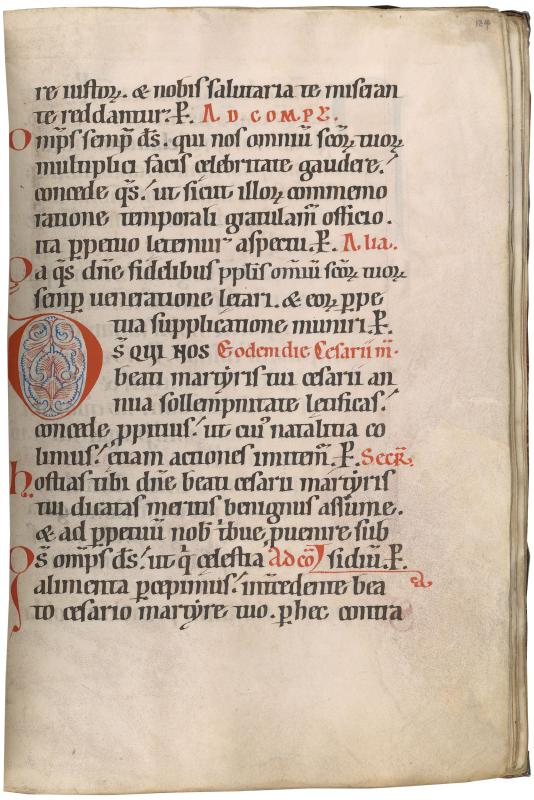 184
re iustoꝝ. & nobis salutaria te miseran
te reddantur. P̶. AD COMPƐ̄.
Omp̄s semp̄ d̄s. qui nos omniū sc̄oꝝ tuoꝝ
multiplici facis celebritate gaudere.
concede q̄s. ut sicut illoꝝ commemo
ratione temporali gratulam̄ officio.
ita ꝑpetuo letemur aspectu. P̶. Alia.
Da q̄s dn̄e fidelibus ppl̄is om̄iū sc̄oꝝ tuoꝝ
semꝑ ueneratione letari. & eoꝝ ꝑpe
tua supplicatione muniri. P̶.
D̄S QUI NOS Eodem die Cesarii m̄.
beati martyris tui cesarii an
nua sollempnitate letificas.
concede ꝓpitius. ut cui᾽ natalitia co
limus. etiam actiones imitem̄. P̶. Secr̄.
hostias tibi dn̄e beati cesarii martyris
tui dicatas meritis benignus assume.
& ad ꝑpetuū nob̄ tⁱbue, puenire sub
sidiū. P̶.
Qs̄ omp̄s d̄s. ut qⁱ celestia ad cō
alimenta ꝑcepimus. int̄cedente bea
to cesario martyre tuo. ꝑ hec contra